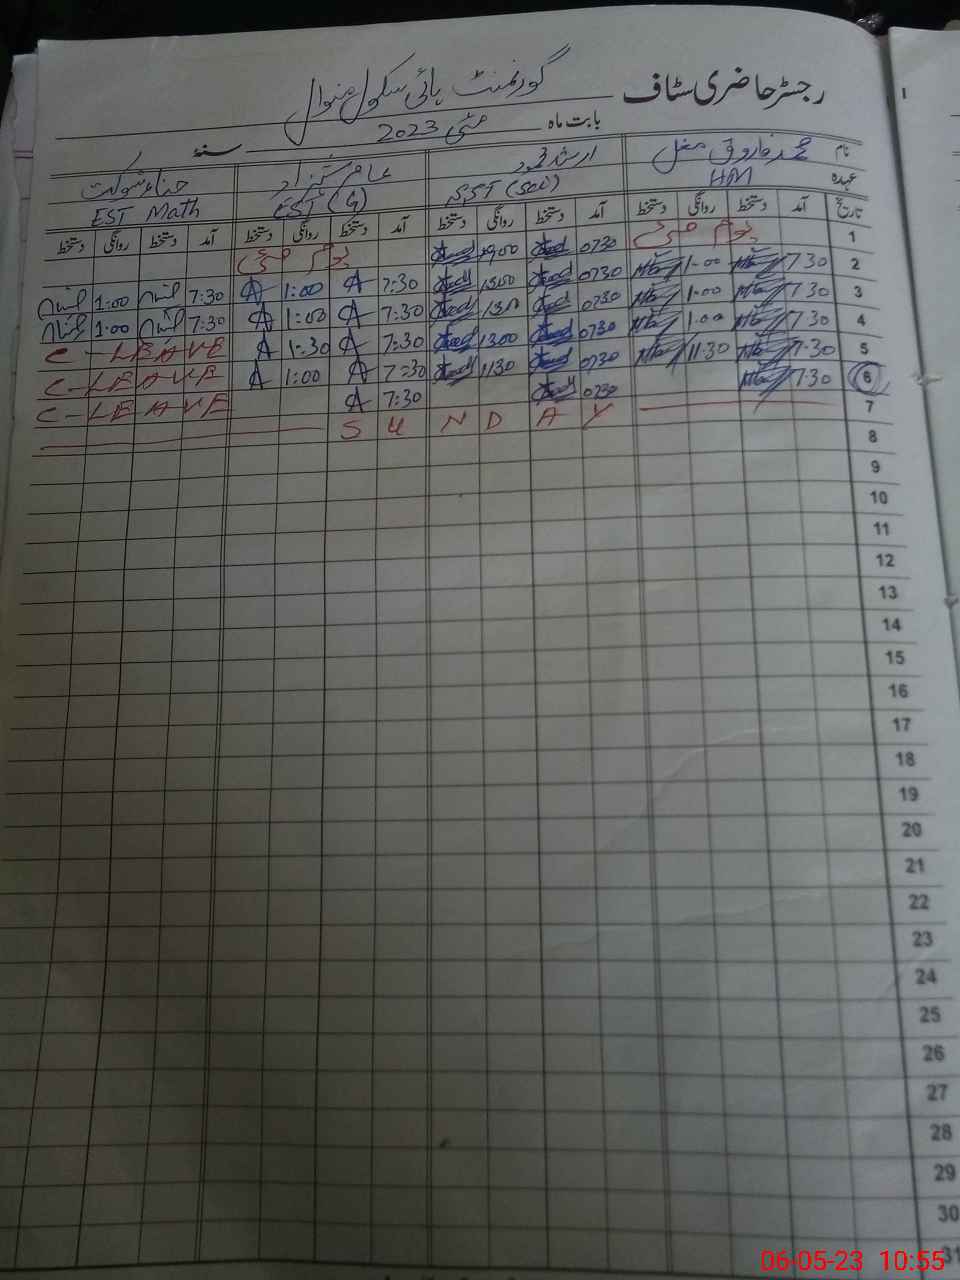 رجسٹر حاضری سٹاف گورنمنٹ ہائی سکول منوال
1
بابت ماہ مئی 2023 سنہ
نام محمد فاروق مغل ارشد محمود عامر شہزاد حناء شوکت
عہدہ HM SST (Sci) EST (G) EST Math
تاریخ آمد دستخط روانگی دستخط آمد دستخط روانگی دستخط آمد دستخط روانگی دستخط آمد دستخط روانگی دستخط
1 یوم مئی یوم مئی
2 7:30 1:00 0730 1300 7:30 A 1:00 A 7:30 1:00
3 7:30 1:00 0730 1300 7:30 A 1:00 A 7:30 1:00
4 7:30 1:00 0730 1300 7:30 A 1:30 A C-LEAVE
5 7:30 11:30 0730 1130 7:30 A 1:00 A C-LEAVE
6 7:30 0730 7:30 A C-LEAVE
7 SUNDAY
8
9
10
11
12
13
14
15
16
17
18
19
20
21
22
23
24
25
26
27
28
29
30
31
06-05-23 10:55